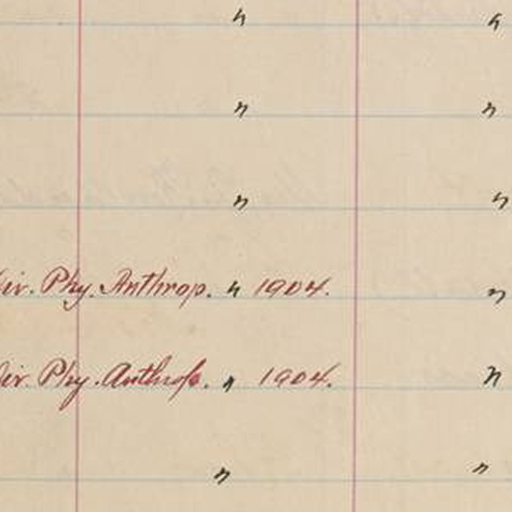 " "
" "
" "
Div. Phy. Anthrop. " 1904. "
Div. Phy. Anthrop. " 1904. "
" "